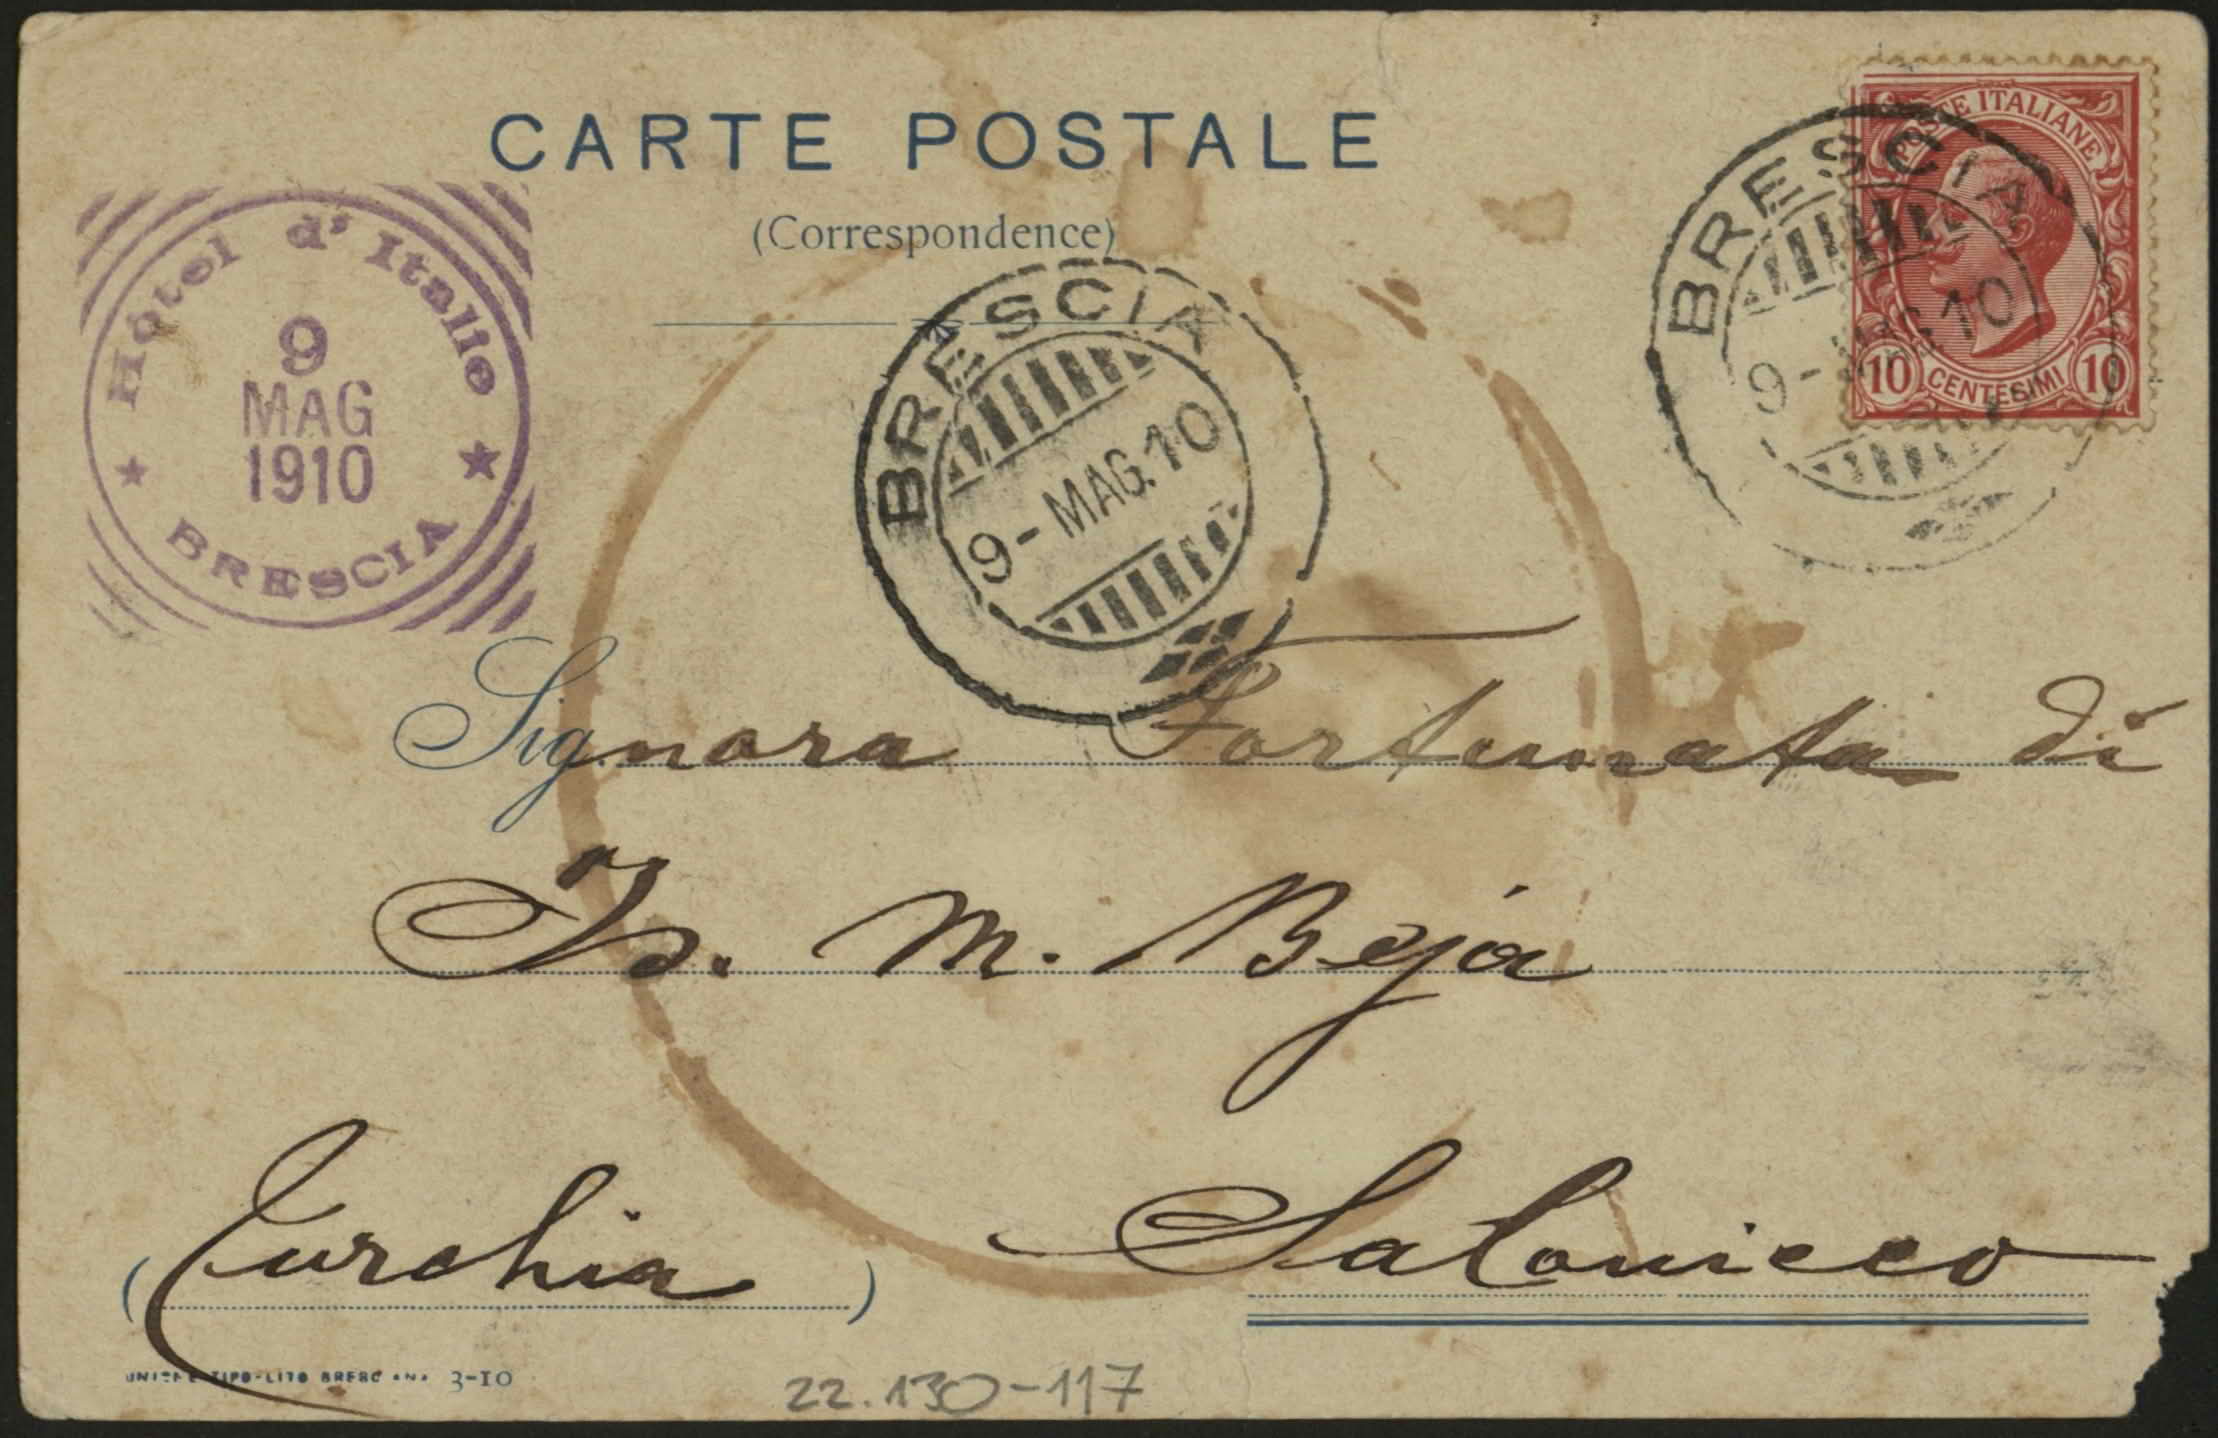 CARTE POSTALE
(Correspondence)
POSTE ITALIANE
10 CENTESIMI 10
BRESCIA
9-MAG.10
BRESCIA
9-MAG.10
Hôtel d'Italie
9
MAG
1910
BRESCIA
Signora Fortunata di
Is. M. Beja
Salonicco
(Turchia)
UNIONE TIPO-LITO BRESCIANA 3-10
22.130-117